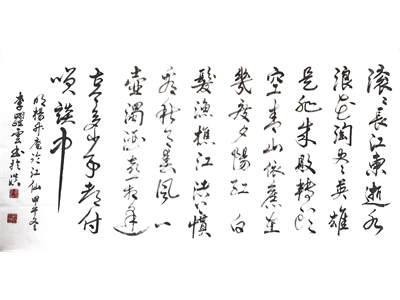 滚〻長江東逝水
浪花淘尽英雄
是非成敗轉头
空青山依舊在
幾度夕陽紅白
髮漁樵江渚慣
看秋月春風一
壺濁酒喜相逢
古今多少事都付
笑談中
明楊升庵临江仙甲午冬
李躍雲书於